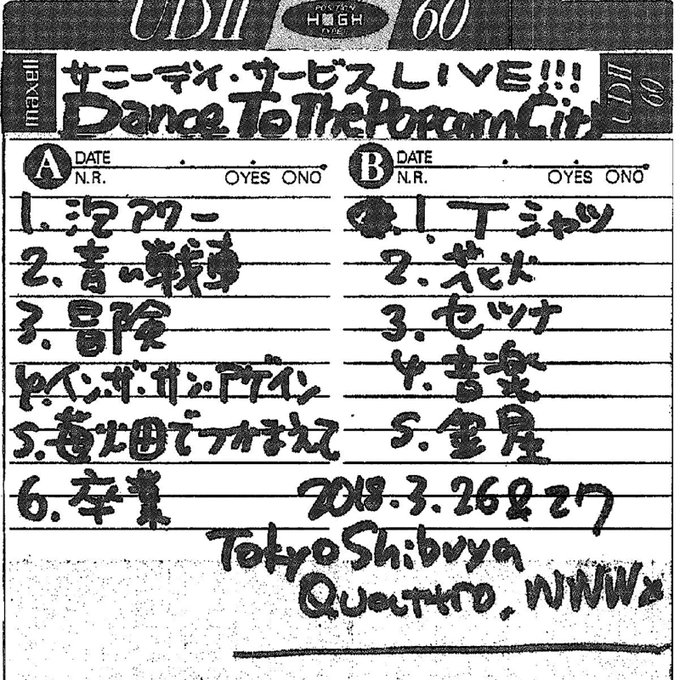 UDII POSITION HIGH TYPE 60
maxell サニーデイ・サービス LIVE!!! UDII 60
Dance To The Popcorn City
A DATE
N.R. YES NO
1. 泡アワー
2. 青い戦車
3. 冒険
4. イン・ザ・サン・アゲイン
5. 苺畑でつかまえて
6. 卒業
B DATE
N.R. YES NO
1. Tシャツ
2. 花火
3. セツナ
4. 音楽
5. 金星
2018.3.26&27
Tokyo Shibuya
Quattro, WWWX